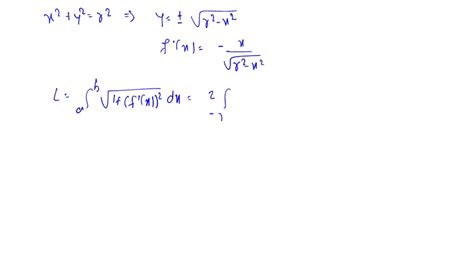 x² + y² = r² ⇒ y = ± √(r² - x²)
f'(x) = - x / √(r² - x²)
L = ∫ₐᵇ √(1 + (f'(x))²) dx = 2 ∫₋